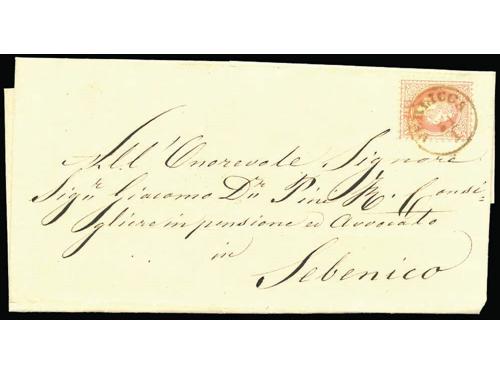 VERLICCA
All' Onorevole Signore
Sigr. Giacomo Dr. Pini R. Consi-
gliere in pensione ed Avvocato
in
Sebenico